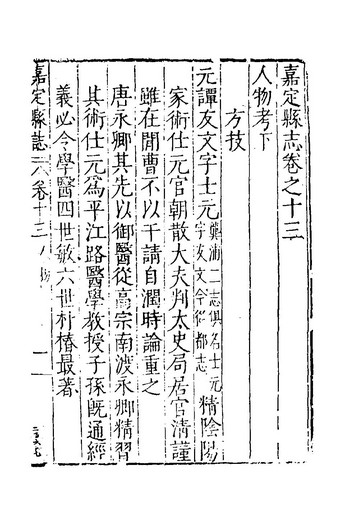 嘉定縣志卷之十三
人物考下
方技
元譚友文字士元浦二志俱名士元字友文今從都志精陰陽
家術仕元官朝散大夫判太史局居官清謹
雖在閒曹不以干請自潤時論重之
唐永卿其先以御醫從高宗南渡永卿精習
其術仕元爲平江路醫學教授子孫既通經
義必令學醫四世敏六世村椿最著
嘉定縣誌 卷十三 一